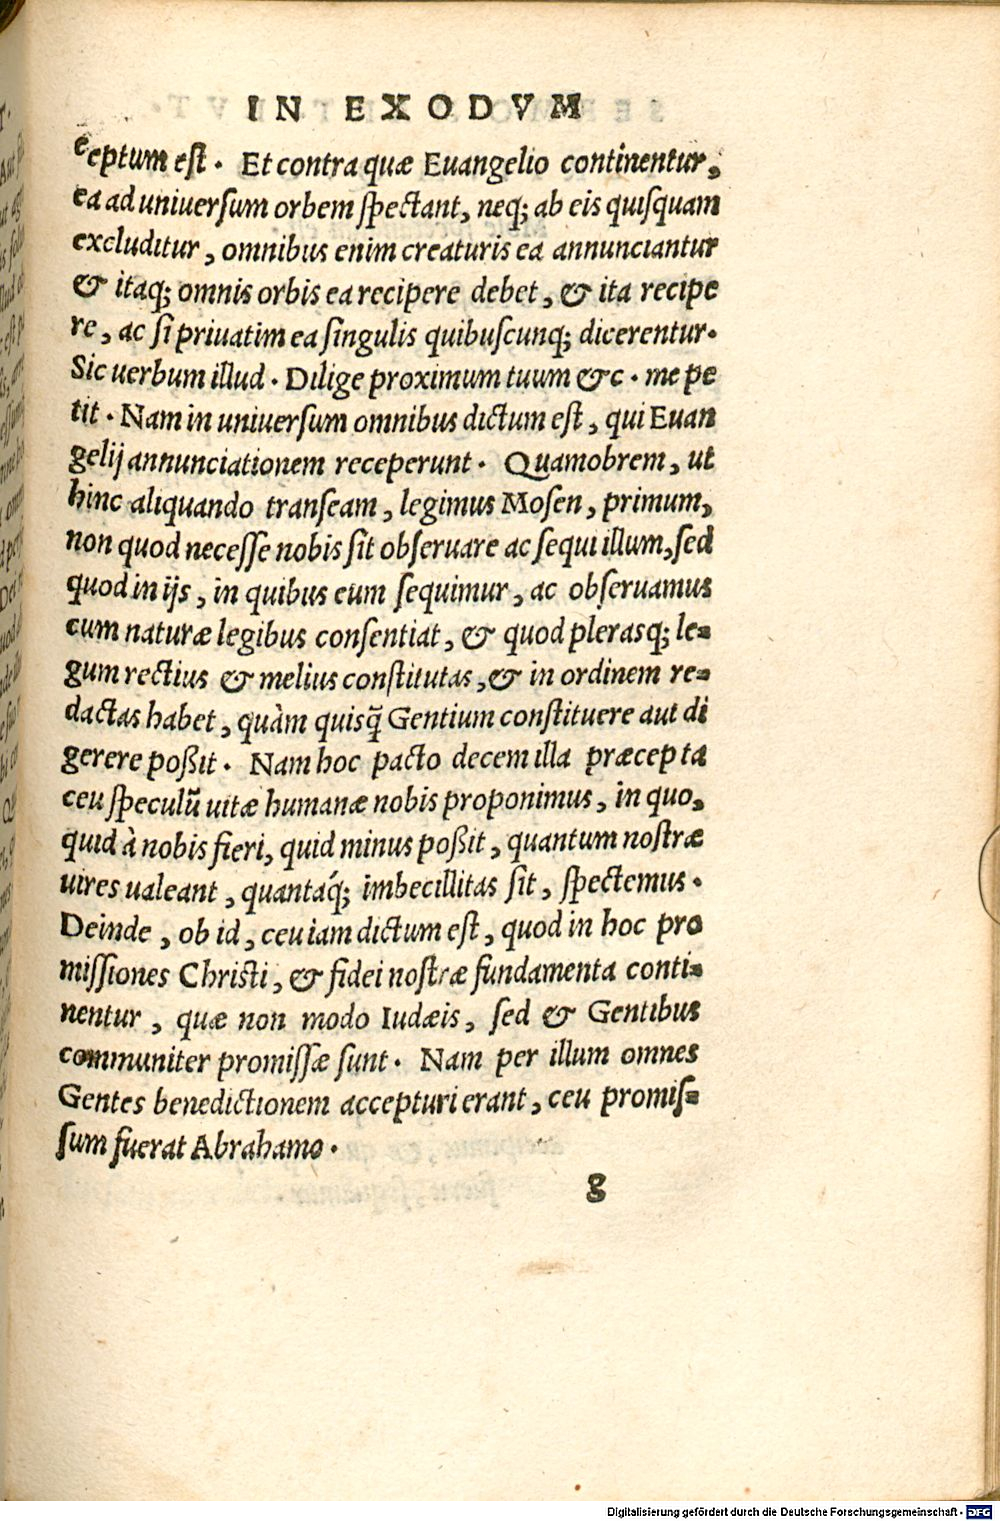 IN EXODVM
ceptum est. Et contra quæ Euangelio continentur,
ea ad uniuersum orbem spectant, neq; ab eis quisquam
excluditur, omnibus enim creaturis ea annunciantur
& itaq; omnis orbis ea recipere debet, & ita recipe
re, ac si priuatim ea singulis quibuscunq; dicerentur.
Sic uerbum illud. Dilige proximum tuum &c. me pe
tit. Nam in uniuersum omnibus dictum est, qui Euan
gelij annunciationem receperunt. Quamobrem, ut
hinc aliquando transeam, legimus Mosen, primum,
non quod necesse nobis sit obseruare ac sequi illum, sed
quod in ijs, in quibus eum sequimur, ac obseruamus
cum naturæ legibus consentiat, & quod plerasq; le=
gum rectius & melius constitutas, & in ordinem re=
dactas habet, quàm quisq̃ Gentium constituere aut di
gerere poßit. Nam hoc pacto decem illa præcepta
ceu speculũ uitæ humanæ nobis proponimus, in quo,
quid à nobis fieri, quid minus poßit, quantum nostræ
uires ualeant, quantaq́; imbecillitas sit, spectemus.
Deinde, ob id, ceu iam dictum est, quod in hoc pro
missiones Christi, & fidei nostræ fundamenta conti=
nentur, quæ non modo Iudæis, sed & Gentibus
communiter promissæ sunt. Nam per illum omnes
Gentes benedictionem accepturi erant, ceu promis=
sum fuerat Abrahamo.
g
Digitalisierung gefördert durch die Deutsche Forschungsgemeinschaft - DFG